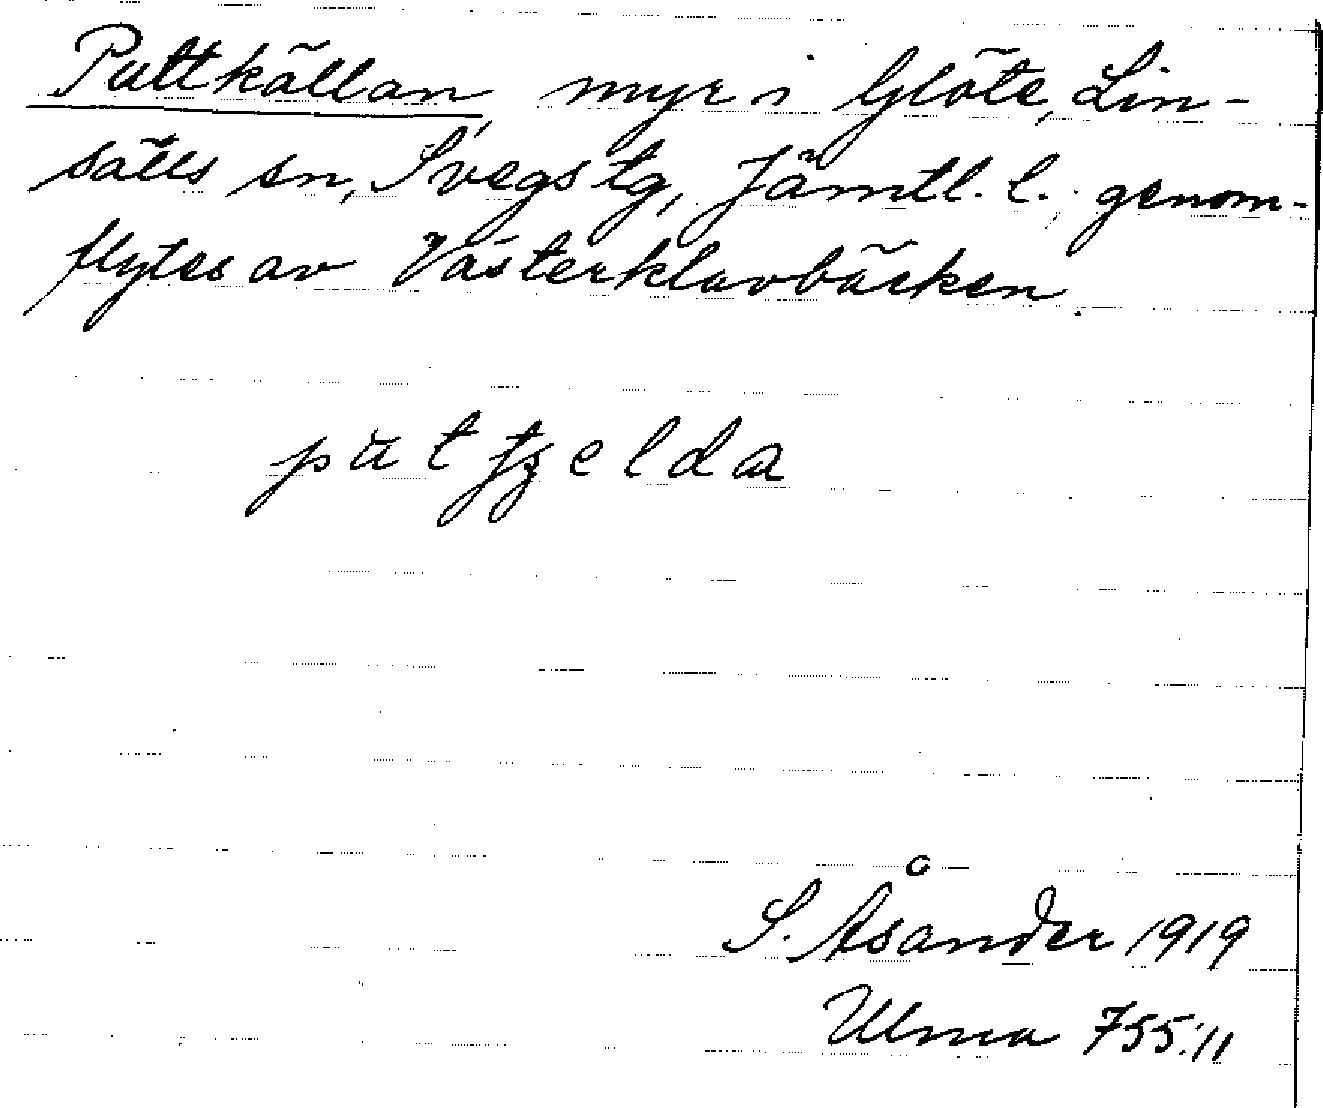 Puttkällan, myr i Glöte, Lin-
sälls sn, Svegs tg, Jämtl. l., genom-
flytes av Västerklavbäcken.
S. Åsander 1919
Ulma 755:11